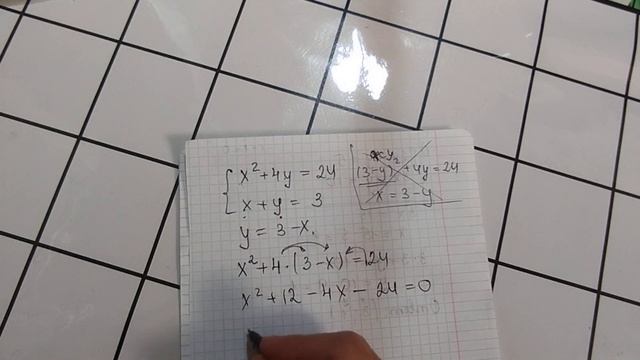 x²+4y = 24
x+y = 3
y = 3-x.
x²+4·(3-x) = 24
x²+12-4x-24=0
(3-y)²+4y=24
x=3-y